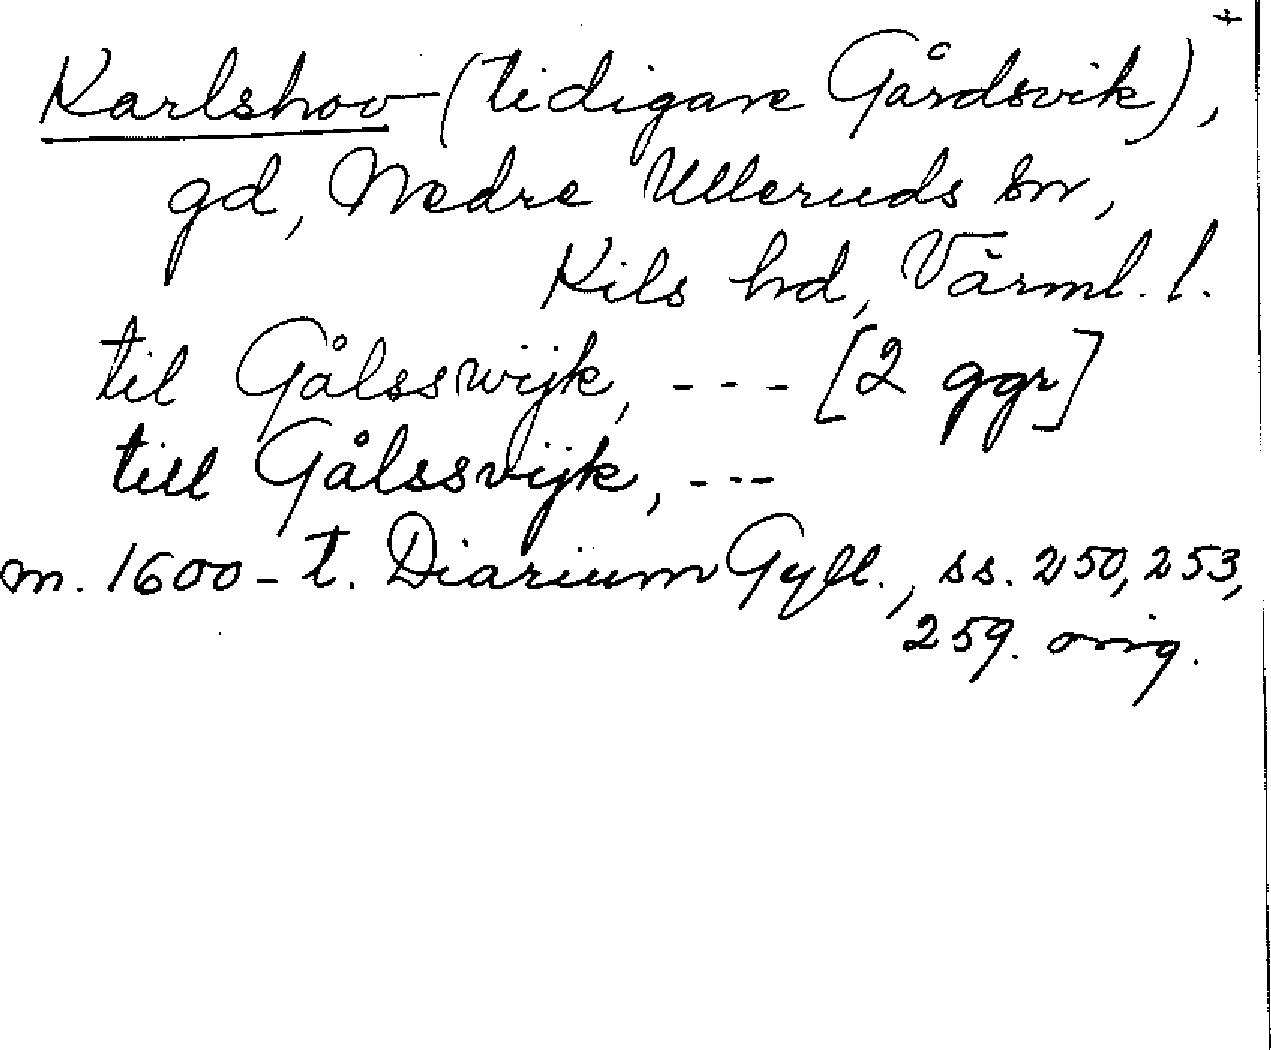 +
Karlshov (tidigare Gårdsvik),
gd, Nedre Ulleruds sn,
Kils hd, Värml. l.
til Gålsswijk, --- [2 ggr]
till Gålssvijk, ---
m. 1600-t. Diarium Gyll., ss. 250, 253,
259. orig.